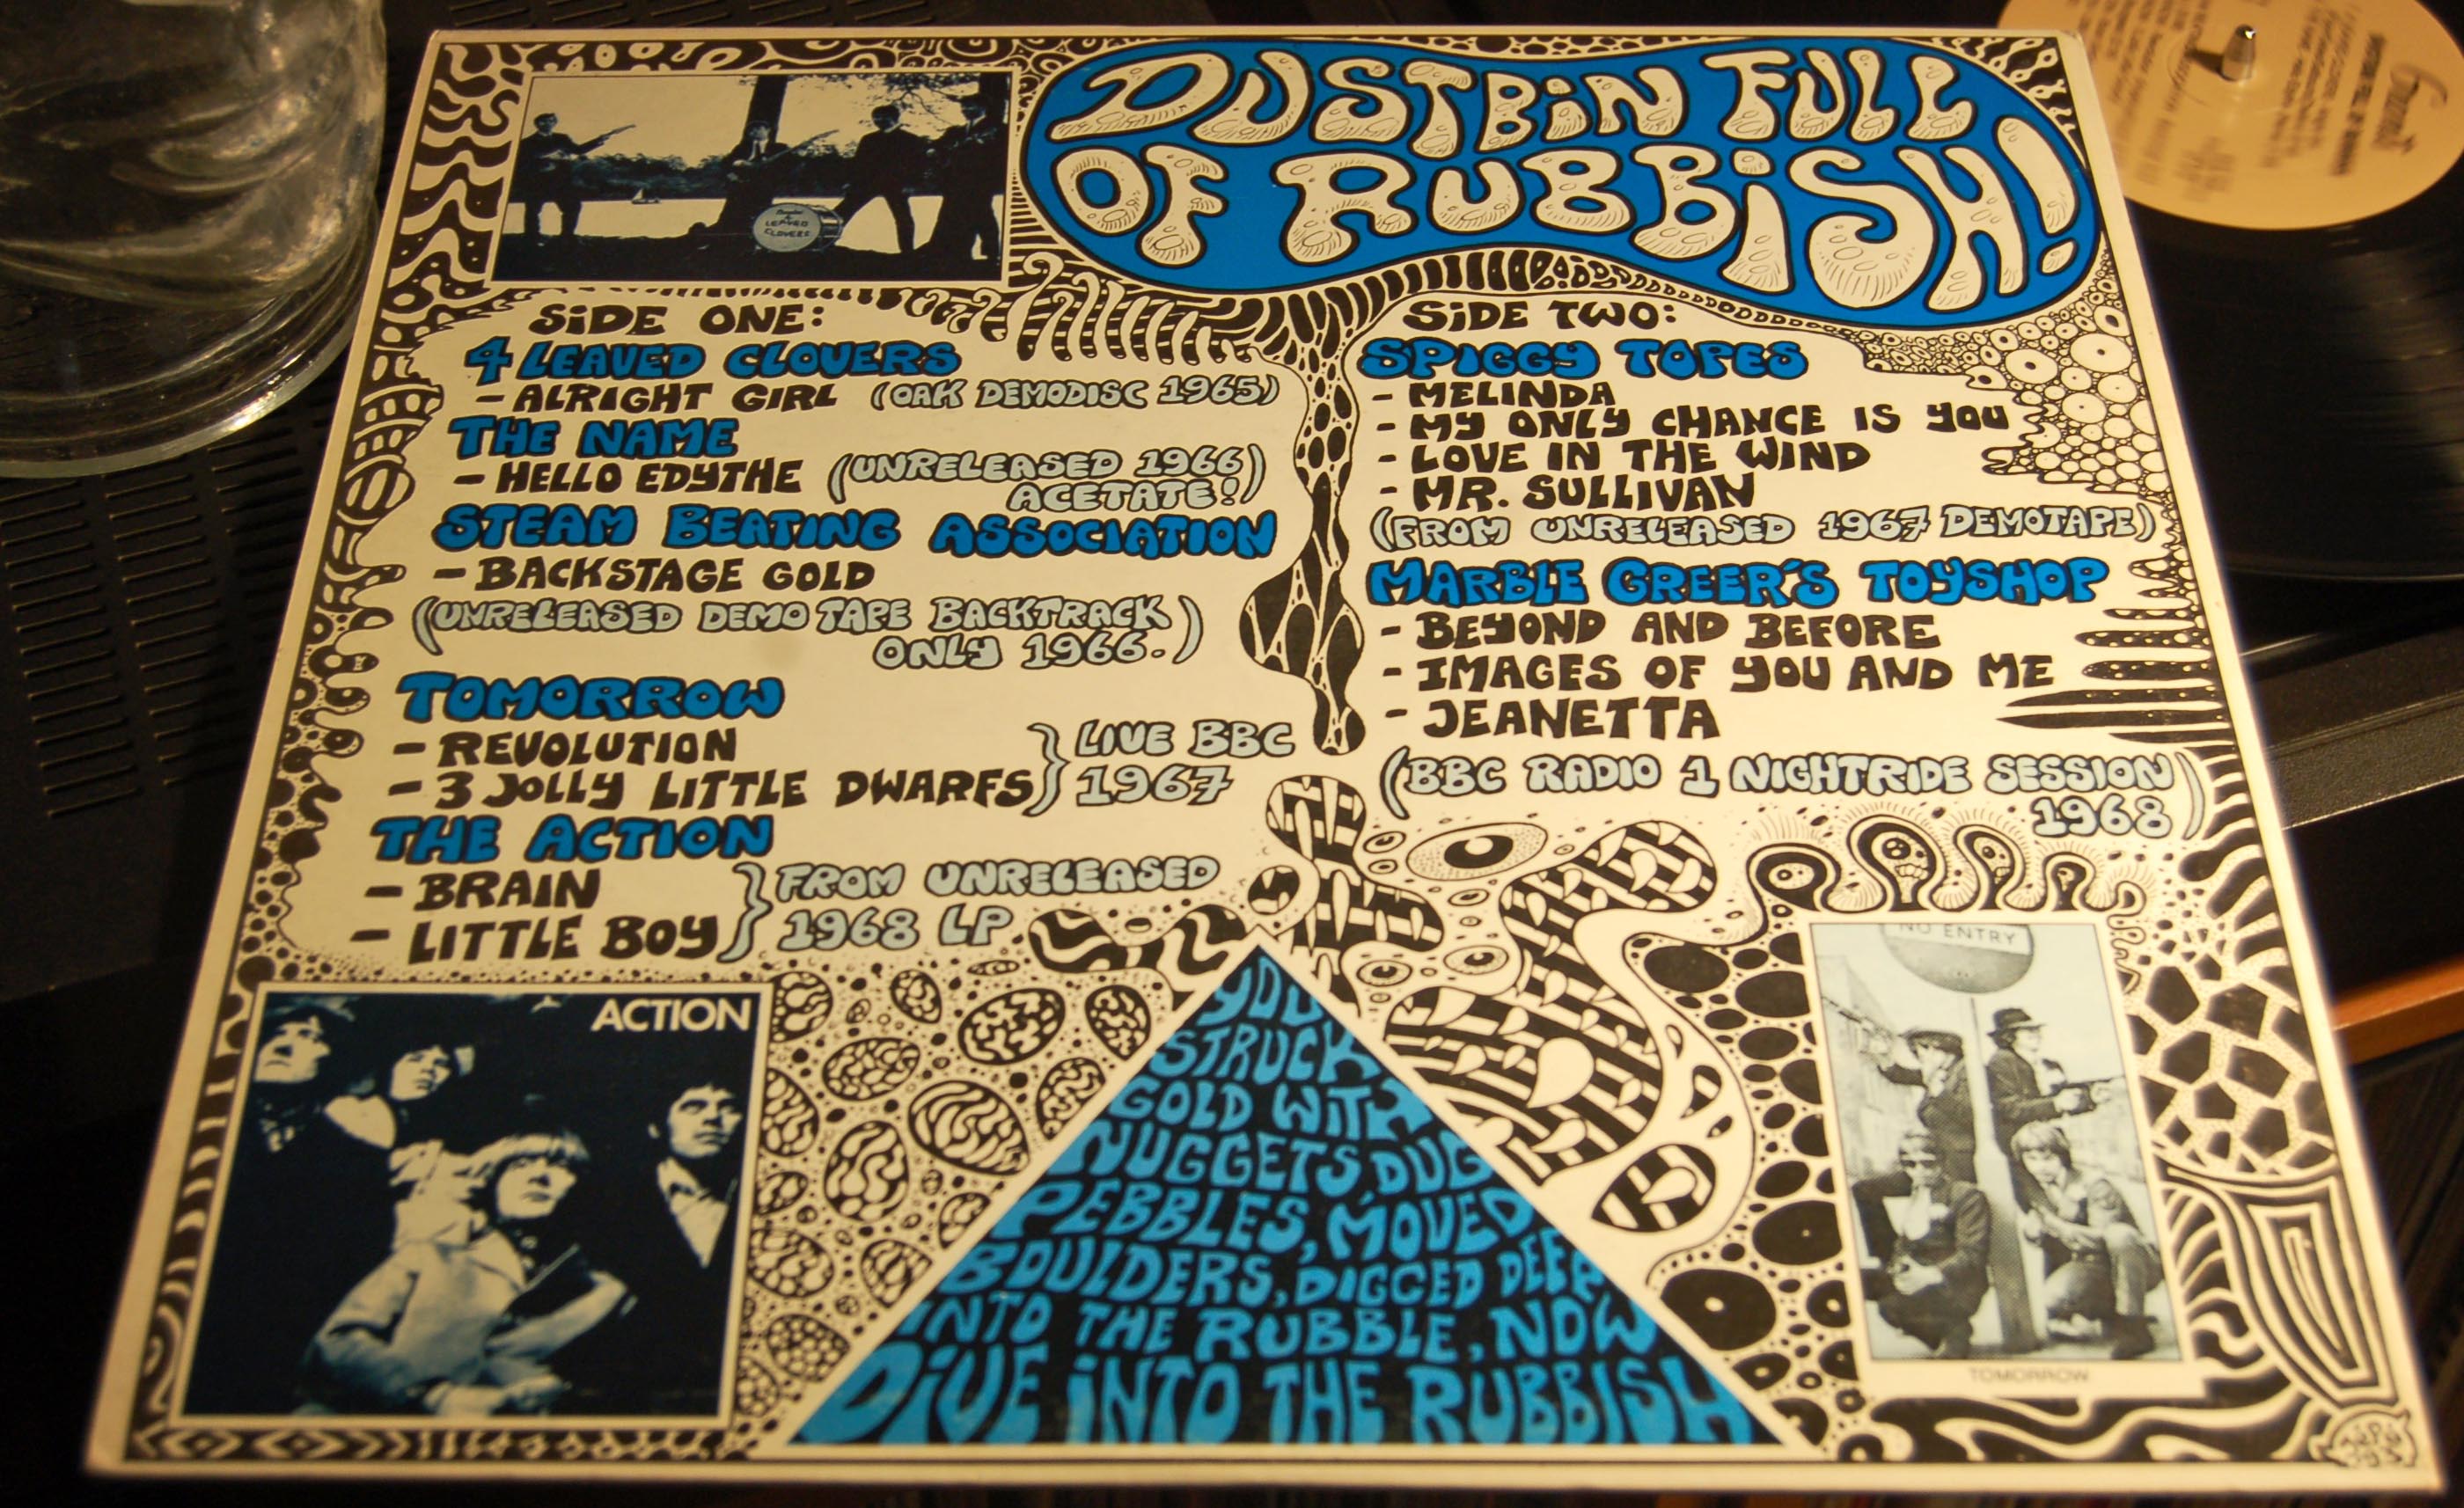 DUSTBIN FULL
OF RUBBISH!
4 LEAVED
CLOVERS
SIDE ONE:
4 LEAVED CLOVERS
- ALRIGHT GIRL (OAK DEMODISC 1965)
THE NAME
- HELLO EDYTHE (UNRELEASED 1966
ACETATE!)
STEAM BEATING ASSOCIATION
- BACKSTAGE GOLD
(UNRELEASED DEMO TAPE BACKTRACK
ONLY 1966.)
TOMORROW
- REVOLUTION
- 3 JOLLY LITTLE DWARFS } LIVE BBC
1967
THE ACTION
- BRAIN
- LITTLE BOY } FROM UNRELEASED
1968 LP
SIDE TWO:
SPIGGY TOPES
- MELINDA
- MY ONLY CHANCE IS YOU
- LOVE IN THE WIND
- MR. SULLIVAN
(FROM UNRELEASED 1967 DEMOTAPE)
MARBLE GREER'S TOYSHOP
- BEYOND AND BEFORE
- IMAGES OF YOU AND ME
- JEANETTA
(BBC RADIO 1 NIGHTRIDE SESSION)
1968
ACTION
YOU
STRUCK
GOLD WITH
NUGGETS, DUG
PEBBLES, MOVED
BOULDERS, DIGGED DEEP
INTO THE RUBBLE, NOW
DIVE INTO THE RUBBISH
NO ENTRY
TOMORROW